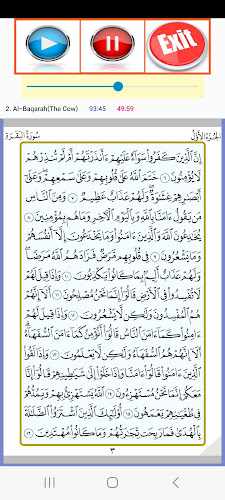 Exit
2. Al-Baqarah(The Cow) 93:45 49:59
سُورَةُ البَقَـرَةِ الجُزءُ الأَوَّلُ
إِنَّ ٱلَّذِينَ كَفَرُوا۟ سَوَآءٌ عَلَيْهِمْ ءَأَنذَرْتَهُمْ أَمْ لَمْ تُنذِرْهُمْ
لَا يُؤْمِنُونَ ٦ خَتَمَ ٱللَّهُ عَلَىٰ قُلُوبِهِمْ وَعَلَىٰ سَمْعِهِمْ ۖ وَعَلَىٰٓ
أَبْصَـٰرِهِمْ غِشَـٰوَةٌ ۖ وَلَهُمْ عَذَابٌ عَظِيمٌ ٧ وَمِنَ ٱلنَّاسِ
مَن يَقُولُ ءَامَنَّا بِٱللَّهِ وَبِٱلْيَوْمِ ٱلْـَٔاخِرِ وَمَا هُم بِمُؤْمِنِينَ ٨
يُخَـٰدِعُونَ ٱللَّهَ وَٱلَّذِينَ ءَامَنُوا۟ وَمَا يَخْدَعُونَ إِلَّآ أَنفُسَهُمْ
وَمَا يَشْعُرُونَ ٩ فِى قُلُوبِهِم مَّرَضٌ فَزَادَهُمُ ٱللَّهُ مَرَضًا ۖ
وَلَهُمْ عَذَابٌ أَلِيمٌۢ بِمَا كَانُوا۟ يَكْذِبُونَ ١٠ وَإِذَا قِيلَ لَهُمْ
لَا تُفْسِدُوا۟ فِى ٱلْأَرْضِ قَالُوٓا۟ إِنَّمَا نَحْنُ مُصْلِحُونَ ١١ أَلَآ إِنَّهُمْ
هُمُ ٱلْمُفْسِدُونَ وَلَـٰكِن لَّا يَشْعُرُونَ ١٢ وَإِذَا قِيلَ لَهُمْ
ءَامِنُوا۟ كَمَآ ءَامَنَ ٱلنَّاسُ قَالُوٓا۟ أَنُؤْمِنُ كَمَآ ءَامَنَ ٱلسُّفَهَآءُ ۗ
أَلَآ إِنَّهُمْ هُمُ ٱلسُّفَهَآءُ وَلَـٰكِن لَّا يَعْلَمُونَ ١٣ وَإِذَا لَقُوا۟
ٱلَّذِينَ ءَامَنُوا۟ قَالُوٓا۟ ءَامَنَّا وَإِذَا خَلَوْا۟ إِلَىٰ شَيَـٰطِينِهِمْ قَالُوٓا۟ إِنَّا
مَعَكُمْ إِنَّمَا نَحْنُ مُسْتَهْزِءُونَ ١٤ ٱللَّهُ يَسْتَهْزِئُ بِهِمْ وَيَمُدُّهُمْ
فِى طُغْيَـٰنِهِمْ يَعْمَهُونَ ١٥ أُو۟لَـٰٓئِكَ ٱلَّذِينَ ٱشْتَرَوُا۟ ٱلضَّلَـٰلَةَ
بِٱلْهُدَىٰ فَمَا رَبِحَت تِّجَـٰرَتُهُمْ وَمَا كَانُوا۟ مُهْتَدِينَ ١٦
٣